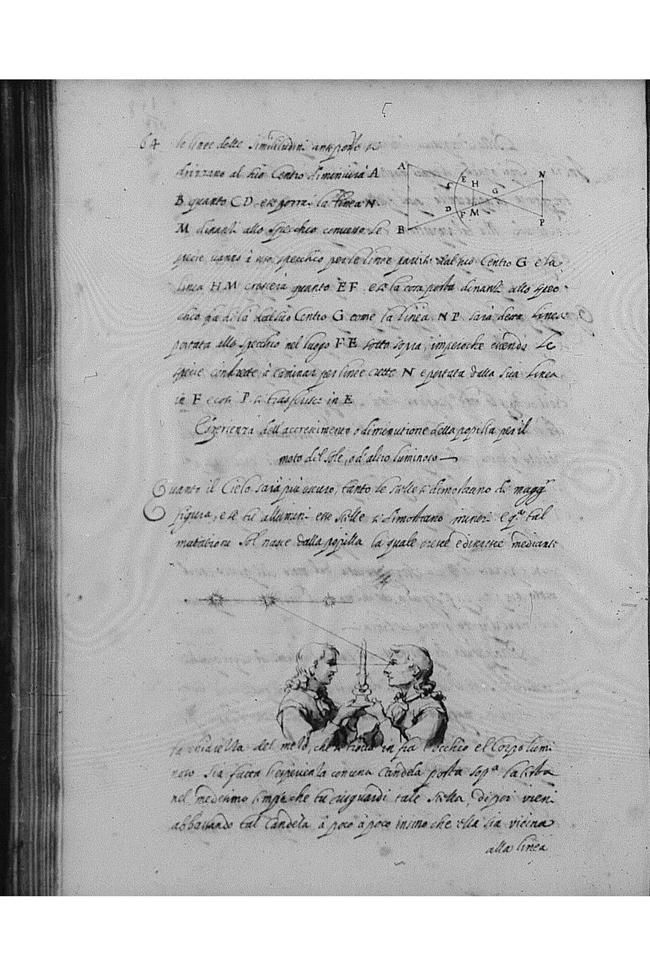 64 le linee delle similitudini anteposte si
drizzano al suo Centro diminuirà A
B quanto C D e se porrai la linea N
M dinanti allo specchio concavo le
specie vanno à uso specchio per le linee partite dal suo Centro G e la
linea H M crescerà quanto E F e se la cosa posta dinanti allo spec
chio sia di là dal suo Centro G come la linea N P sarà detta linea
portata allo specchio nel luogo F E sotto sopra, imperoche essendo le
specie constrette à caminar per linee rette N è portata dalla sua linea
in F e così P si trasferisce in E
Esperienza dell'accrescimento o diminutione della popilla per il
moto del sole, o d'altro luminoso
Quanto il Cielo sarà più oscuro, tanto le stelle si dimostrano di magg.r
figura, e se tu allumini esse stelle si dimostrano minori e q.ta tal
mutatione sol nasce dalla popilla la quale cresce e discresce mediante
la chiarezza del mezo, che si trova in fra l'occhio e'l Corpo lumi
noso Sia fatta l'esperienza con una Candela posta sop.a la testa
nel medesimo tempo che tu risguardi tale stella, di poi vieni
abbassando tal Candela à poco à poco insino che ella sia vicina
alla linea
A
B
E
H
G
N
D
F
M
P